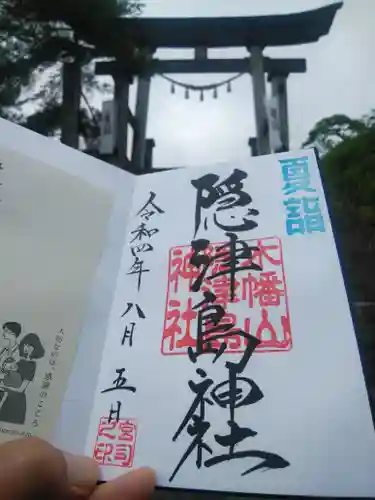 夏詣
隠津島神社
木幡山
隠津島
神社
令和四年八月五日
宮司之印